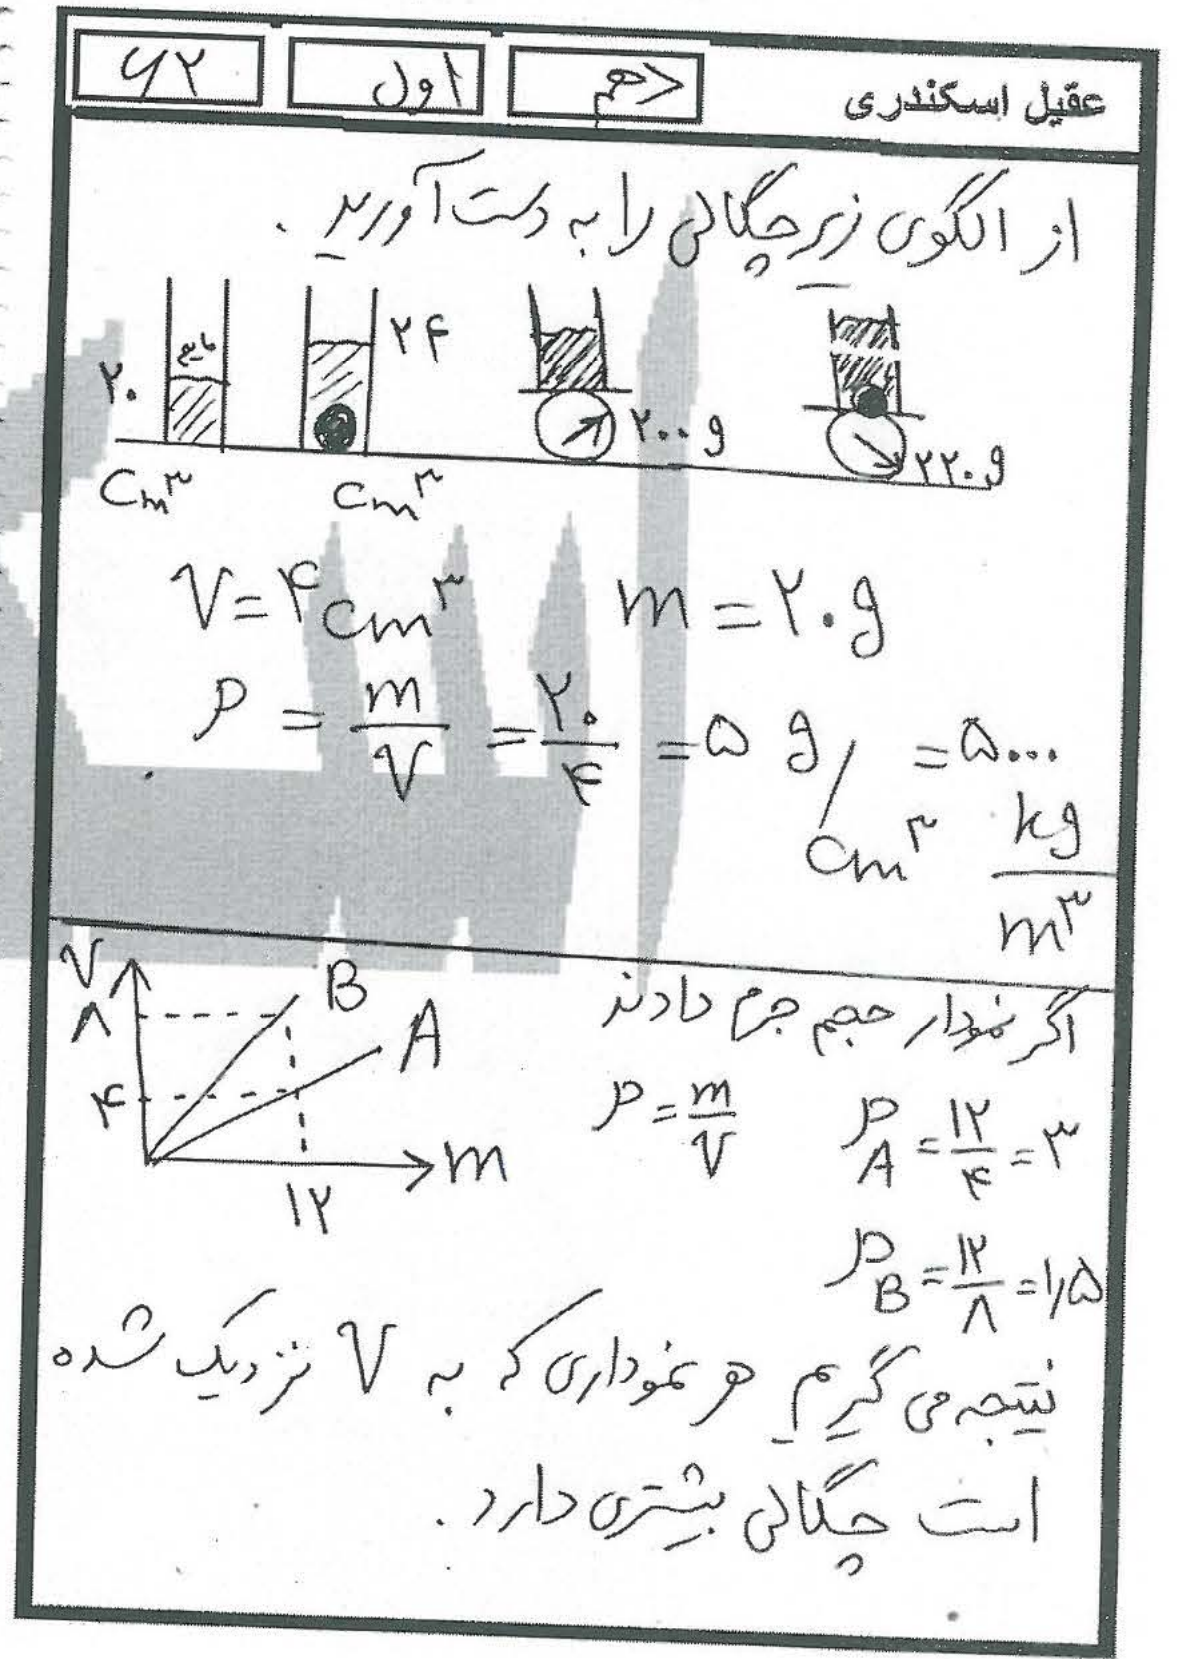 عقیل اسکندری
دهم
اول
۶۲
از الگوی زیر چگالی را به دست آورید .
۲۰ مایع ۲۴ ۲۰۰ g ۲۲۰ g
cm³ cm³
V = ۴ cm³ m = ۲۰ g
ρ = m/V = ۲۰/۴ = ۵ g/cm³ = ۵۰۰۰ kg/m³
اگر نمودار حجم جرم دادند
V ۸ ۴ B A m ۱۲
ρ = m/V ρA = ۱۲/۴ = ۳
ρB = ۱۲/۸ = ۱/۵
نتیجه می گیریم هر نموداری که به V نزدیک شده
است چگالی بیشتری دارد .